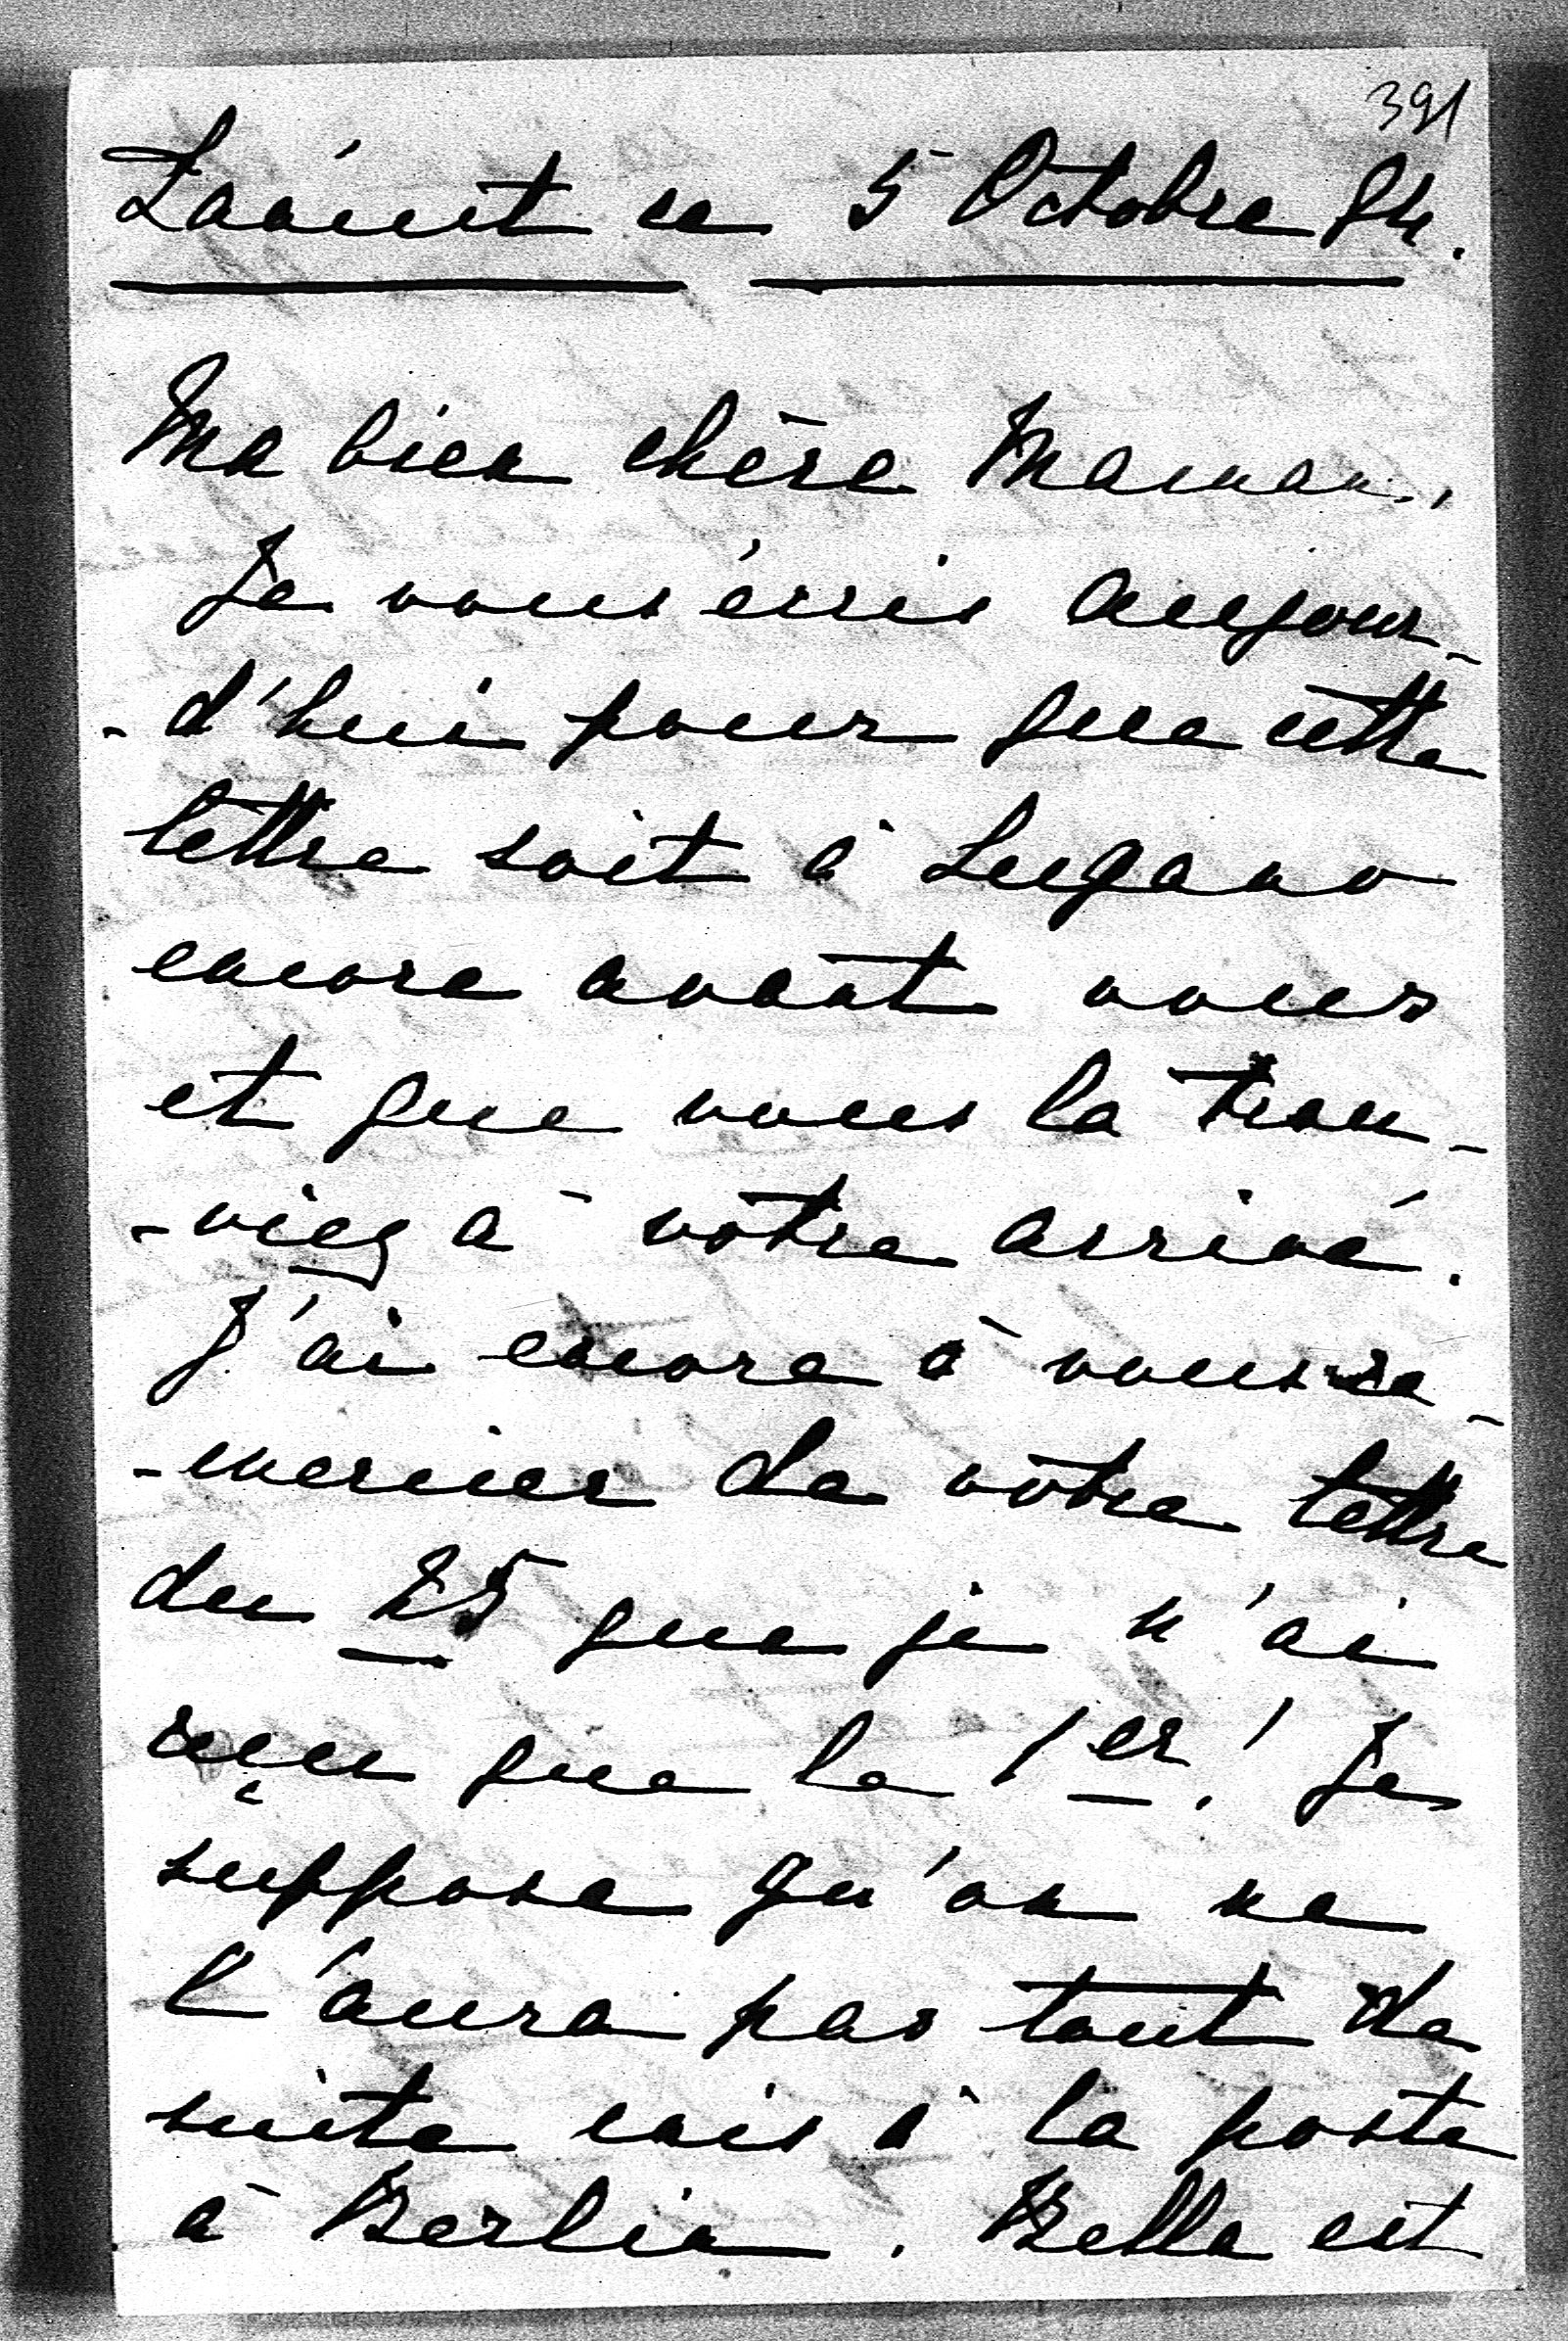 391
Laáint ce 5 Octobre 84.
Ma bien chère Maman,
Je vous écris aujour-
-d'hui pour que cette
lettre soit à Lugano
encore avant vous
et que vous la trou-
-viez à vôtre arrivé.
J'ai encore à vous re-
-mercier de vôtre lettre
du 25 que je n'ai
reçu que le 1er! Je
suppose qu'on ne
l'aura pas tout de
suite mis à la poste
à Berlin. Bella est